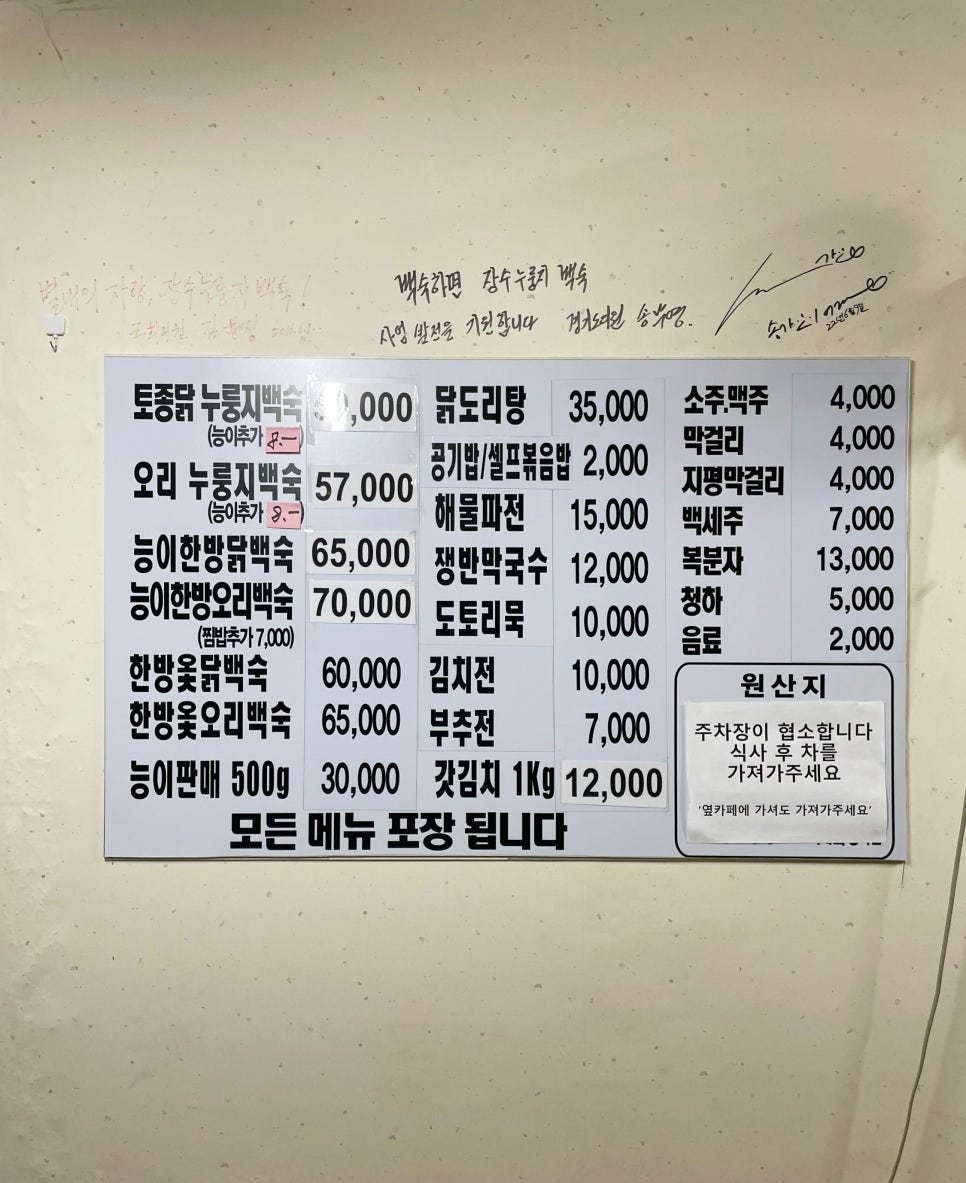 백숙하면 장수누룽지 백숙
사업 발전을 기원합니다
토종닭 누룽지백숙 ,000
(능이추가 8.-)
오리 누룽지백숙 57,000
(능이추가 8.-)
능이한방닭백숙 65,000
능이한방오리백숙 70,000
(찜밥추가 7,000)
한방옻닭백숙 60,000
한방옻오리백숙 65,000
능이판매 500g 30,000
닭도리탕 35,000
공기밥/셀프볶음밥 2,000
해물파전 15,000
쟁반막국수 12,000
도토리묵 10,000
김치전 10,000
부추전 7,000
갓김치 1Kg 12,000
모든 메뉴 포장 됩니다
소주.맥주 4,000
막걸리 4,000
지평막걸리 4,000
백세주 7,000
복분자 13,000
청하 5,000
음료 2,000
원산지
주차장이 협소합니다
식사 후 차를
가져가주세요
'옆카페에 가셔도 가져가주세요'